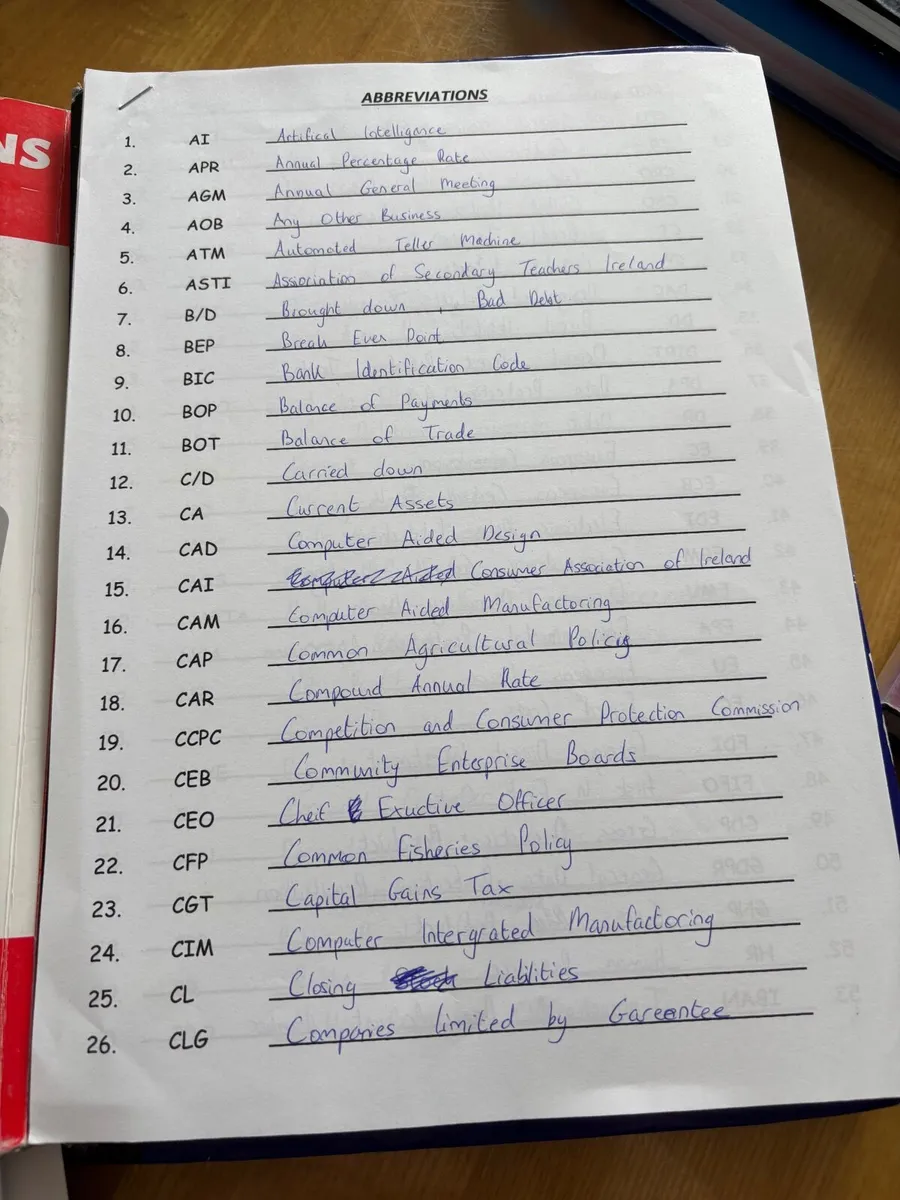 NS
ABBREVIATIONS
1. AI Artifical Intelligence
2. APR Annual Percentage Rate
3. AGM Annual General Meeting
4. AOB Any Other Business
5. ATM Automated Teller Machine
6. ASTI Association of Secondary Teachers Ireland
7. B/D Brought down , Bad Debt
8. BEP Break Even Point
9. BIC Bank Identification Code
10. BOP Balance of Payments
11. BOT Balance of Trade
12. C/D Carried down
13. CA Current Assets
14. CAD Computer Aided Design
15. CAI Computer Aided Consumer Association of Ireland
16. CAM Computer Aided Manufactoring
17. CAP Common Agricultural Policy
18. CAR Compound Annual Rate
19. CCPC Competition and Consumer Protection Commission
20. CEB Community Enterprise Boards
21. CEO Cheif Exuctive Officer
22. CFP Common Fisheries Policy
23. CGT Capital Gains Tax
24. CIM Computer Intergrated Manufactoring
25. CL Closing Liablities
26. CLG Companies Limited by Gareentee